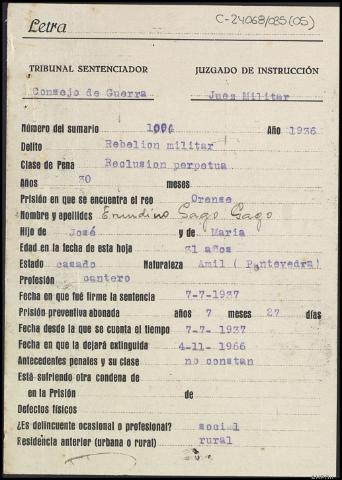 C-24068/085(05)
Letra
TRIBUNAL SENTENCIADOR JUZGADO DE INSTRUCCIÓN
Consejo de Guerra Juez Militar
Número del sumario Año 1936
Delito Rebelion militar
Clase de Pena Reclusion perpetua
Años 30 meses
Prisión en que se encuentra el reo Orense
Nombre y apellidos Erundino Gago Gago
Hijo de José y de Maria
Edad en la fecha de esta hoja 31 años
Estado casado Naturaleza Amil ( Pontevedra)
Profesión cantero
Fecha en que fué firme la sentencia 7-7-1937
Prisión preventiva abonada años 7 meses 27 días
Fecha desde la que se cuenta el tiempo 7-7- 1937
Fecha en que la dejará extinguida 4-11-1966
Antecedentes penales y su clase no constan
Está sufriendo otra condena de
en la Prisión de
Defectos físicos
¿Es delincuente ocasional o profesional? social
Residencia anterior (urbana o rural) rural